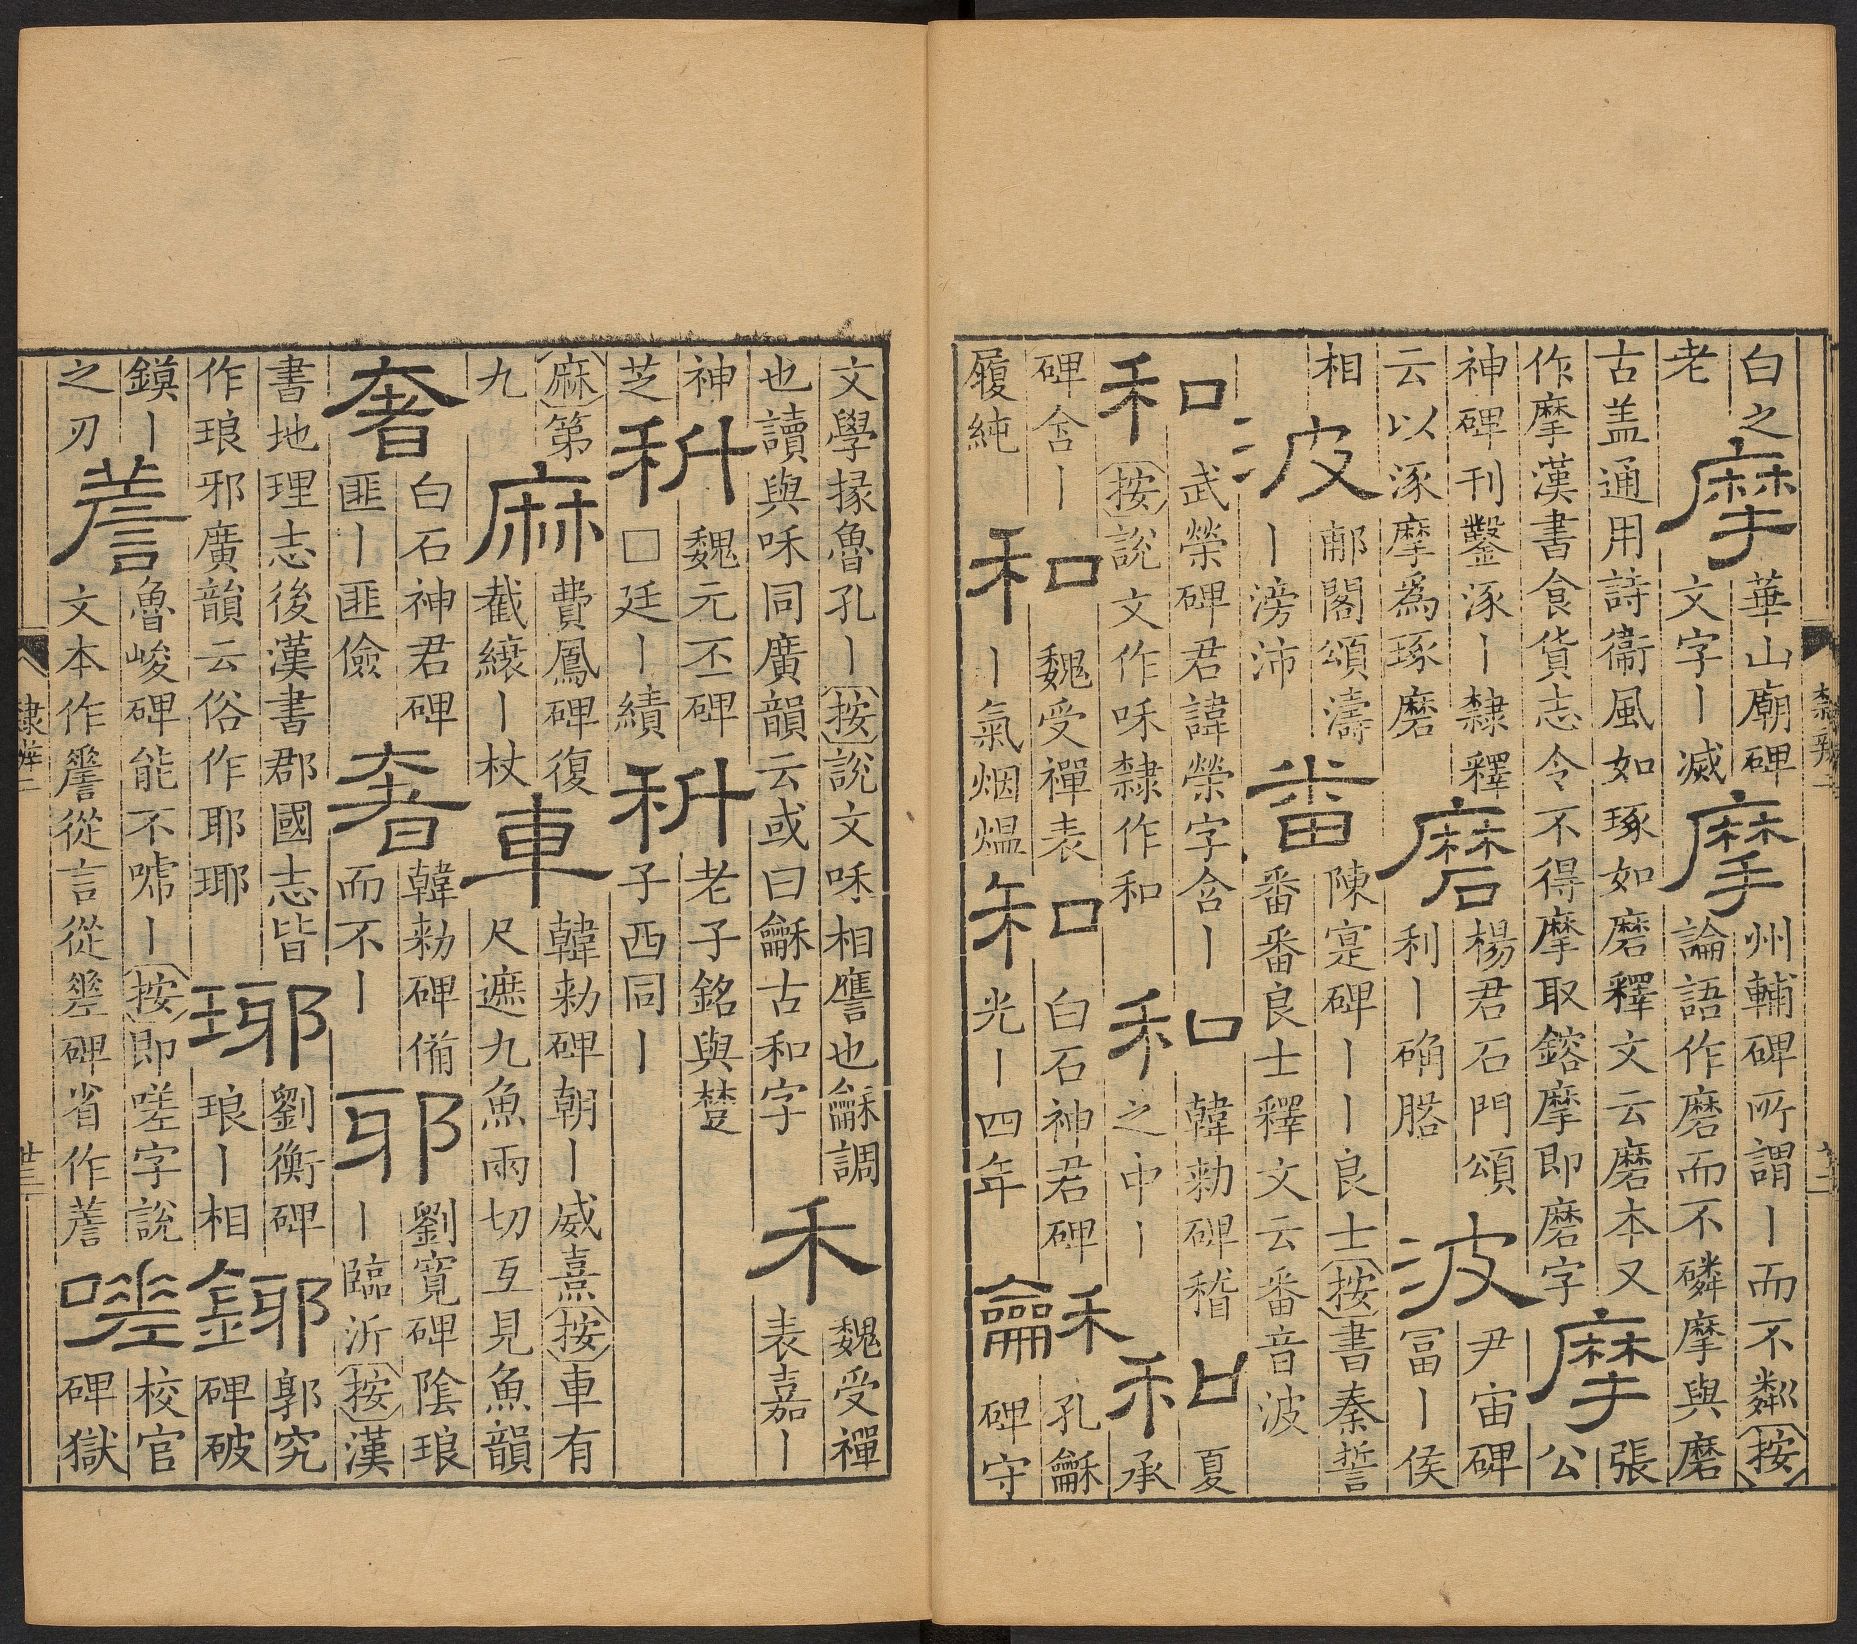 白之
老
摩
華山廟碑
文字丨滅
摩
州輔碑所謂丨而不粼按
論語作磨而不磷摩與磨
古盖通用詩衞風如琢如磨釋文云磨本又
作摩漢書食貨志令不得摩取鎔摩即磨字
摩
張
公
神碑刊鑿涿丨隸釋
云以涿摩爲琢磨
磨
楊君石門頌
利丨确
波
尹宙碑
冨丨侯
相
波
郙閣頌濤
丨滂沛
番
陳寔碑丨丨良士按書秦誓
番番良士釋文云番音波
和
武榮碑君諱榮字含丨
按說文作咊隸作和
和
韓勑碑稽
之中丨
和
夏
承
碑含丨
履純
和
魏受禪表
丨氣烟熅
和
白石神君碑
光丨四年
龢
孔龢
碑守
隸辨二
文學掾魯孔丨按說文咊相譍也龢調
也讀與咊同廣韻云或曰龢古和字
禾
魏受禪
表嘉丨
神
芝
科
魏元丕碑
□廷丨績
科
老子銘與楚
子西同丨
麻第
九
麻
費鳳碑復
截縗丨杖
車
韓勑碑朝丨威熹按車有
尺遮九魚兩切互見魚韻
奢
白石神君碑
匪丨匪儉
奢
韓勑碑脩
而不丨
耶
劉寬碑陰琅
丨臨沂按漢
書地理志後漢書郡國志皆
作琅邪廣韻云俗作耶琊
瑘
劉衡碑
琅丨相
鋣
郭究
碑破
鏌丨
之刃
䓉
魯峻碑能不嘑丨按即嗟字說
文本作𧪘從言從𢀩碑省作䓉
嗟
校官
碑獄
隸辨二
卄三